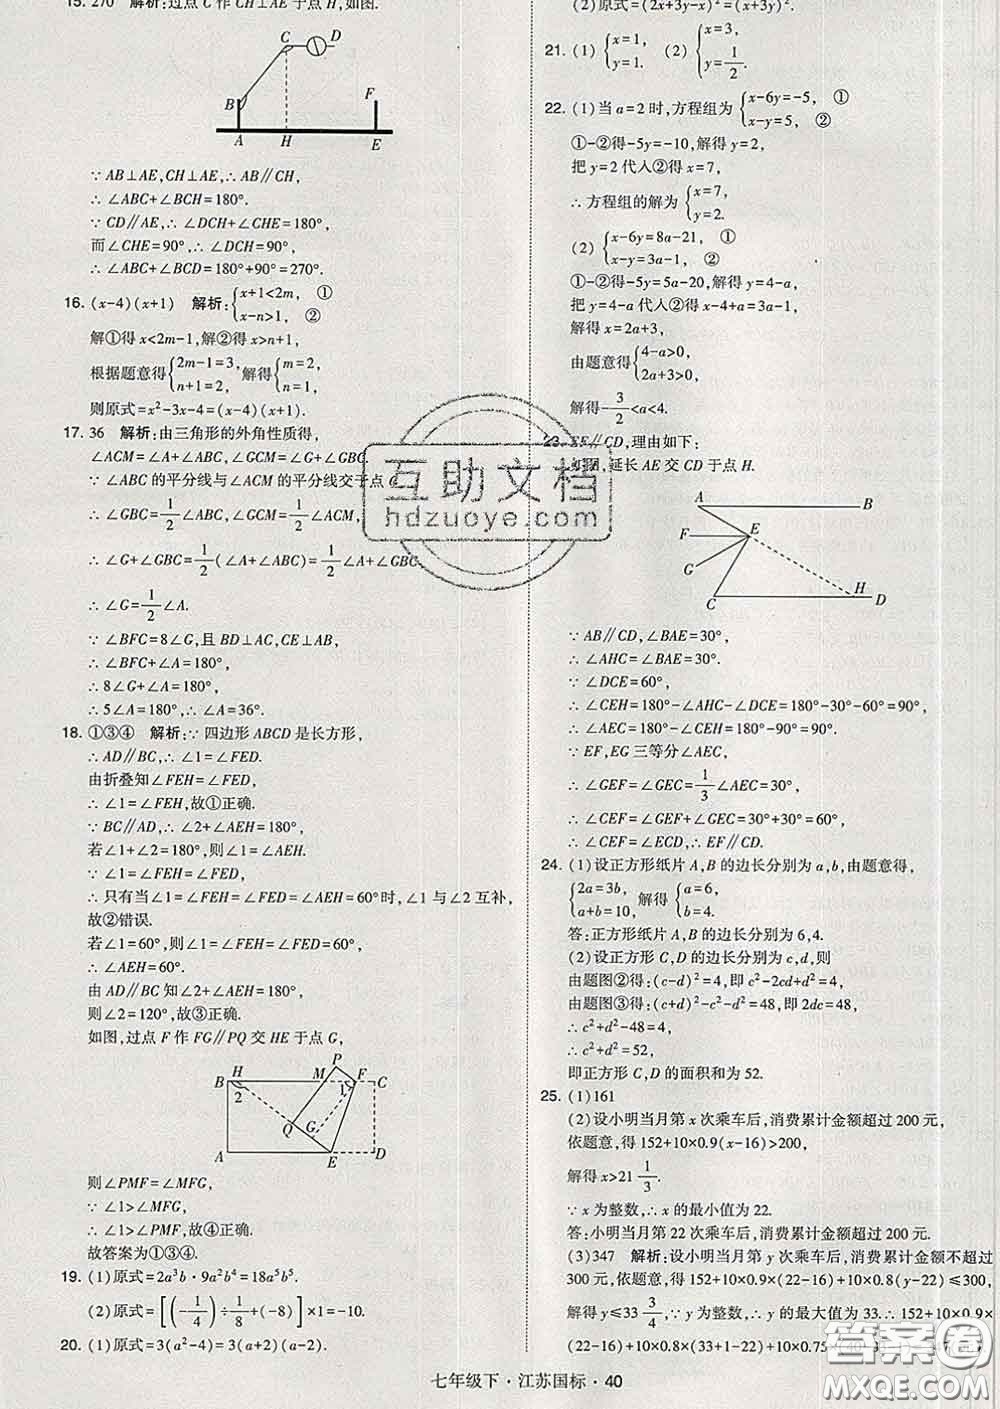 15. 270 解析:过点 C 作 CH⊥AE 于点 H,如图.
C D
B F
A H E
∵ AB⊥AE,CH⊥AE,∴ AB∥CH,
∴ ∠ABC+∠BCH=180°.
∵ CD∥AE,∴ ∠DCH+∠CHE=180°,
而∠CHE=90°,∴ ∠DCH=90°,
∴ ∠ABC+∠BCD=180°+90°=270°.
16. (x-4)(x+1) 解析:{x+1<2m, ① x-n>1, ②
解①得 x<2m-1,解②得 x>n+1,
根据题意得{2m-1=3, n+1=2, 解得{m=2, n=1,
则原式=x²-3x-4=(x-4)(x+1).
17. 36 解析:由三角形的外角性质得,
∠ACM=∠A+∠ABC,∠GCM=∠G+∠GBC,
∵ ∠ABC 的平分线与∠ACM 的平分线交于点
∴ ∠GBC=1/2∠ABC,∠GCM=1/2∠ACM,
∴ ∠G+∠GBC=1/2(∠A+∠ABC)=1/2∠A+∠GBC.
∴ ∠G=1/2∠A.
∵ ∠BFC=8∠G,且 BD⊥AC,CE⊥AB,
∴ ∠BFC+∠A=180°,
∴ 8∠G+∠A=180°,
∴ 5∠A=180°,∴ ∠A=36°.
18. ①③④ 解析:∵ 四边形 ABCD 是长方形,
∴ AD∥BC,∴ ∠1=∠FED.
由折叠知∠FEH=∠FED,
∴ ∠1=∠FEH,故①正确.
∵ BC∥AD,∴ ∠2+∠AEH=180°,
若∠1+∠2=180°,则∠1=∠AEH.
∵ ∠1=∠FEH=∠FED,
∴ 只有当∠1=∠FEH=∠FED=∠AEH=60°时,∠1 与∠2 互补,
故②错误.
若∠1=60°,则∠1=∠FEH=∠FED=60°,
∴ ∠AEH=60°,
由 AD∥BC 知∠2+∠AEH=180°,
则∠2=120°,故③正确.
如图,过点 F 作 FG∥PQ 交 HE 于点 G,
P
B H M F C
2 1
Q G
A E D
则∠PMF=∠MFG,
∵ ∠1>∠MFG,
∴ ∠1>∠PMF,故④正确.
故答案为①③④.
19. (1)原式=2a³b·9a²b⁴=18a⁵b⁵.
(2)原式=[(-1/4)÷1/8+(-8)]×1=-10.
20. (1)原式=3(a²-4)=3(a+2)(a-2).
(2)原式=(2x+3y-x)²=(x+3y)².
21. (1) {x=1, y=1. (2) {x=3, y=1/2.
22. (1)当 a=2 时,方程组为{x-6y=-5, ① x-y=5, ②
①-②得-5y=-10,解得 y=2,
把 y=2 代入②得 x=7,
∴ 方程组的解为{x=7, y=2.
(2) {x-6y=8a-21, ① x-y=3a-1, ②
①-②得-5y=5a-20,解得 y=4-a,
把 y=4-a 代入②得 x-4+a=3a-1,
解得 x=2a+3,
由题意得{4-a>0, 2a+3>0,
解得-3/2<a<4.
23. EF∥CD,理由如下:
如图,延长 AE 交 CD 于点 H.
A B
F E
G
C H D
∵ AB∥CD,∠BAE=30°,
∴ ∠AHC=∠BAE=30°.
∵ ∠DCE=60°,
∴ ∠CEH=180°-∠AHC-∠DCE=180°-30°-60°=90°,
∴ ∠AEC=180°-∠CEH=180°-90°=90°.
∵ EF,EG 三等分∠AEC,
∴ ∠GEF=∠GEC=1/3∠AEC=30°,
∴ ∠CEF=∠GEF+∠GEC=30°+30°=60°,
∴ ∠CEF=∠ECD,∴ EF∥CD.
24. (1)设正方形纸片 A,B 的边长分别为 a,b,由题意得,
{2a=3b, a+b=10, 解得{a=6, b=4.
答:正方形纸片 A,B 的边长分别为 6,4.
(2)设正方形 C,D 的边长分别为 c,d,则
由题图②得:(c-d)²=4,即 c²-2cd+d²=4,
由题图③得:(c+d)²-c²-d²=48,即 2dc=48,
∴ c²+d²-48=4,
∴ c²+d²=52,
即正方形 C,D 的面积和为 52.
25. (1)161
(2)设小明当月第 x 次乘车后,消费累计金额超过 200 元,
依题意,得 152+10×0.9(x-16)>200,
解得 x>21 1/3.
∵ x 为整数,∴ x 的最小值为 22.
答:小明当月第 22 次乘车后,消费累计金额超过 200 元.
(3)347 解析:设小明当月第 y 次乘车后,消费累计金额不超过
300 元,依题意,得 152+10×0.9×(22-16)+10×0.8(y-22)≤300,
解得 y≤33 3/4,∵ y 为整数,∴ y 的最大值为 33.∴ 152+10×0.9×
(22-16)+10×0.8×(33-22)+10×0.75
七年级下·江苏国标·40
互助文档
hdzuoye.com
答案圈
MXQE.COM